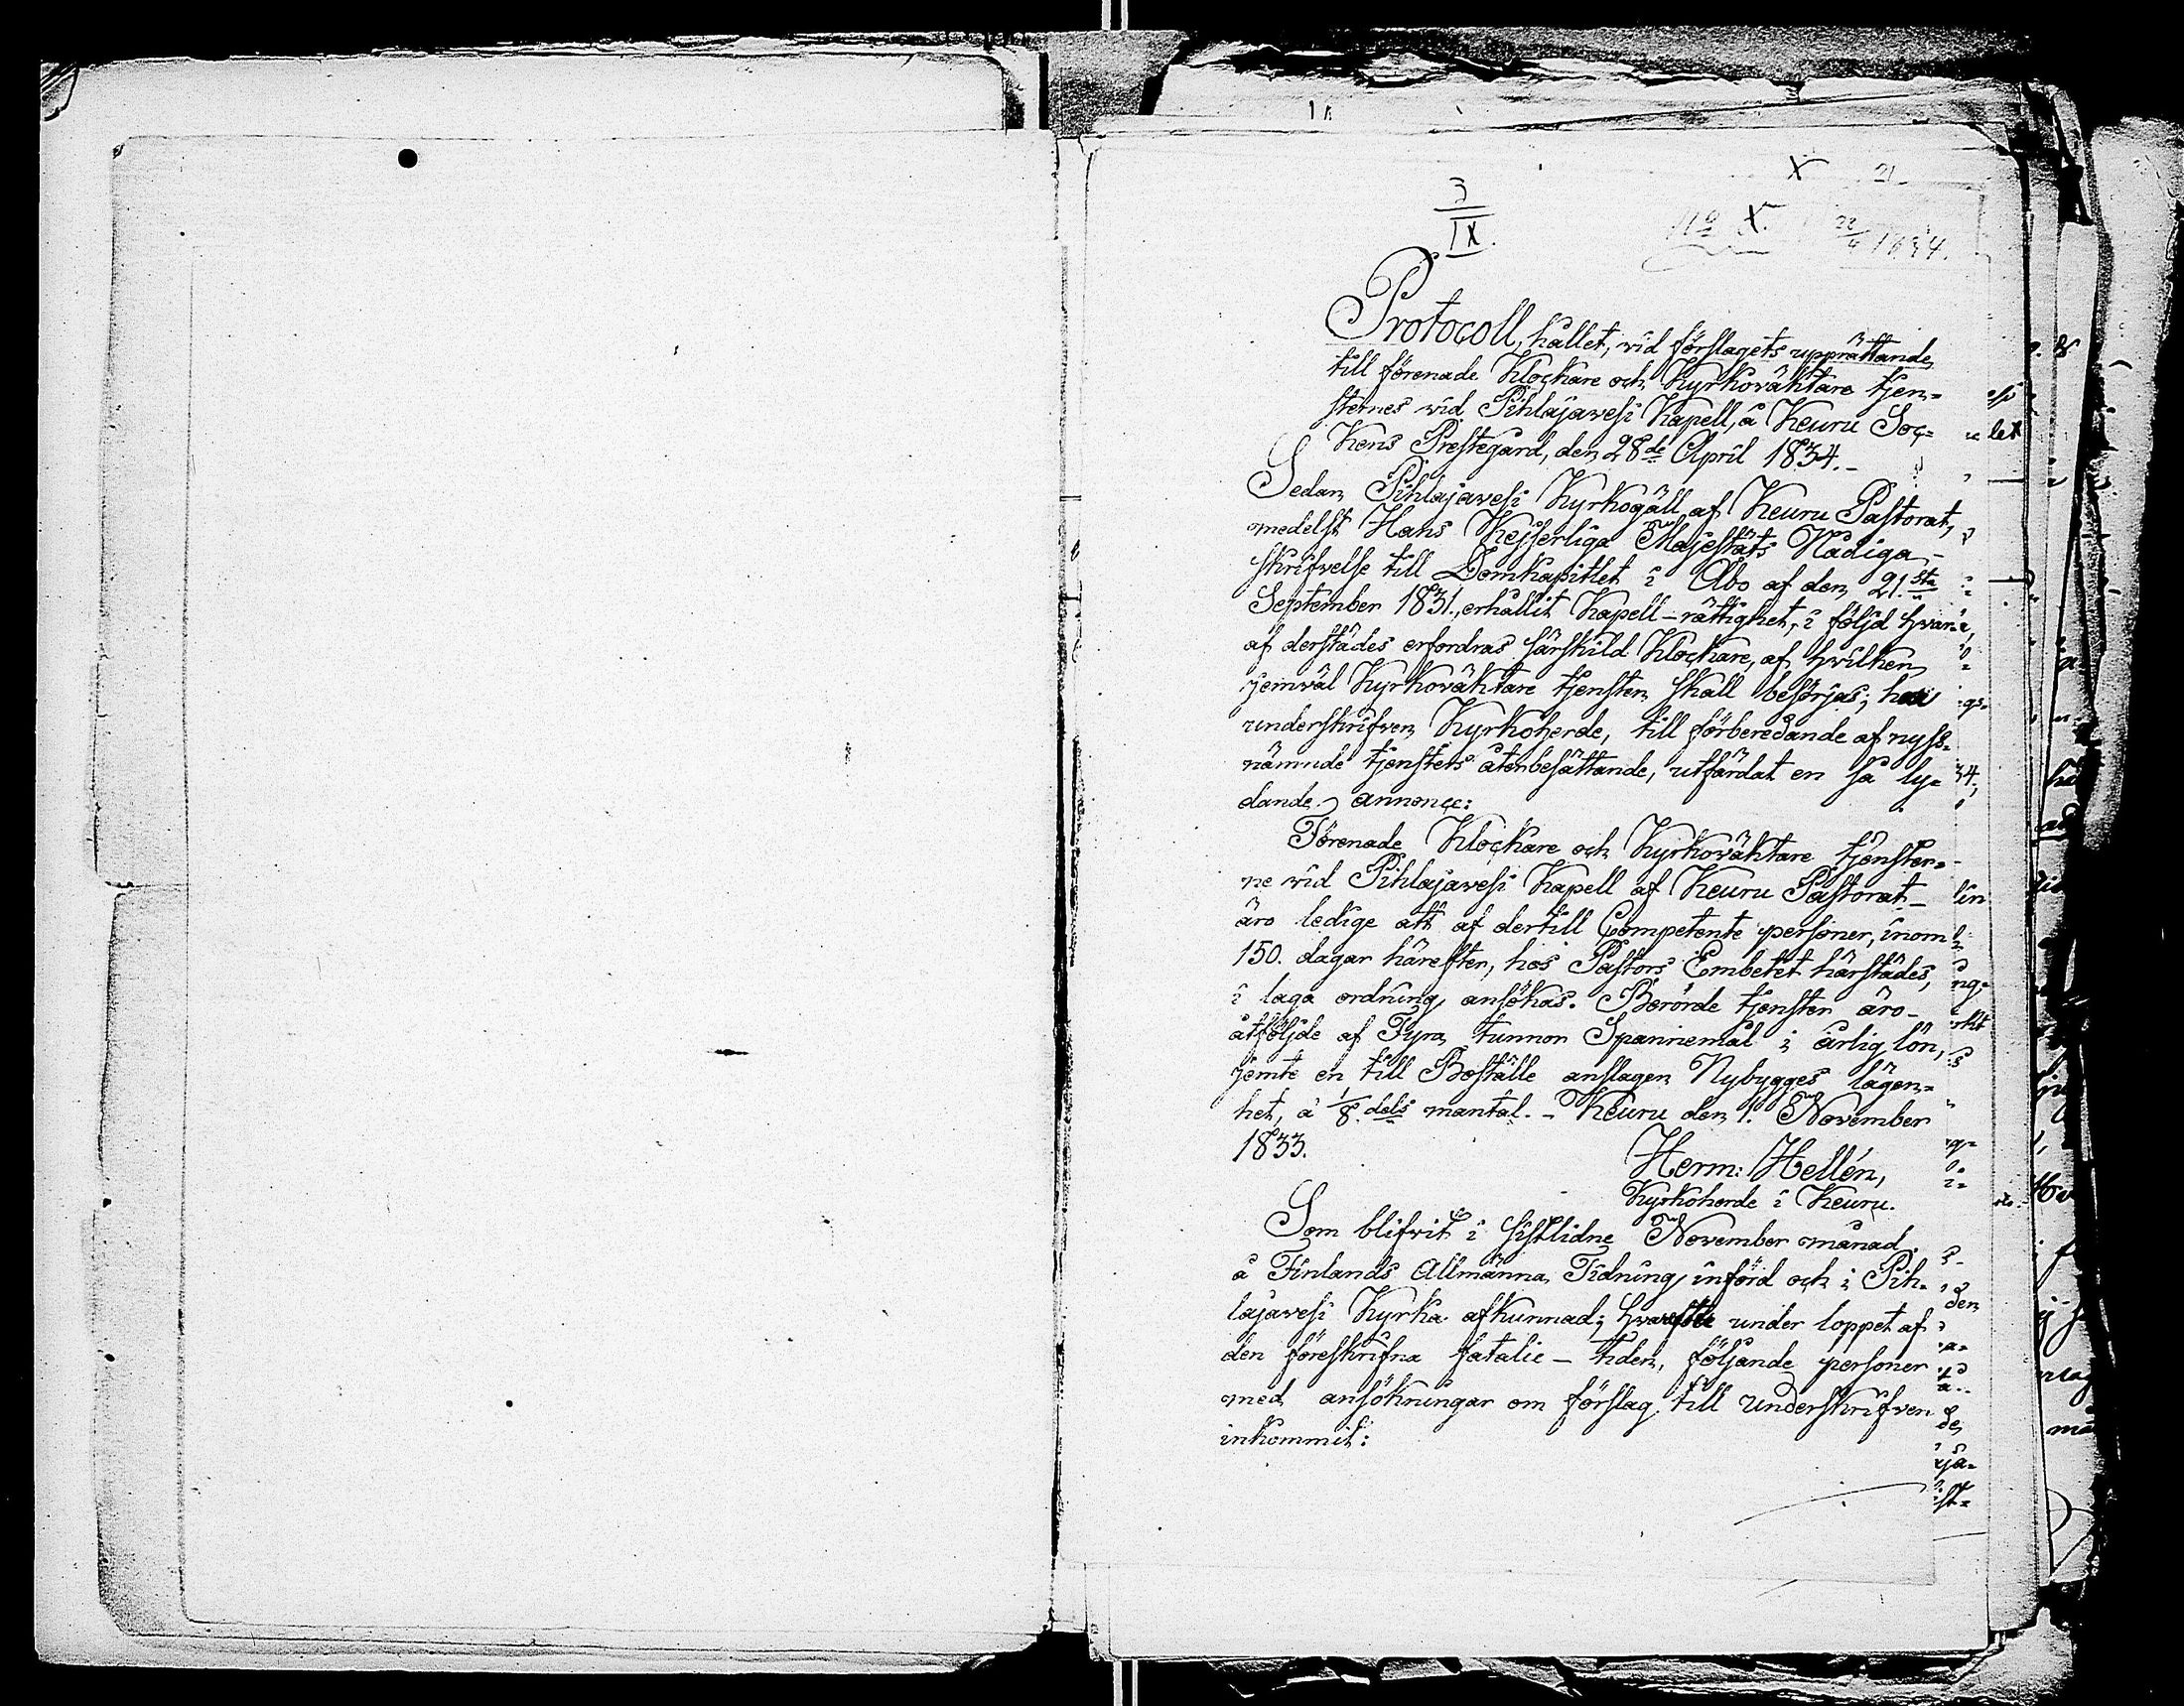 X 21
3
IX.
No X. 22/4 1834.
Protocoll, hållet, vid förslagets upprättande
till förenade Klockare och Kyrkoväktare tjen=
sternes vid Pihlajavesi Kapell, å Keuru Soc=
kens Prestegård, den 28de April 1834.–
Sedan Pihlajavesi Kyrkogäll af Keuru Pastorat,
medelst Hans Kejserliga Majestäts Nådiga
skrifvelse till Domkapitlet i Åbo af den 21.sta
September 1831., erhållit Kapell-rättighet, i följd hvar=
af derstädes erfordras särskild Klockare, af hvilken
jemväl Kyrkoväktare tjensten skall besörjas; har
underskrifven Kyrkoherde, till förberedande af nyss=
nämnde tjensters återbesättande, utfärdat en så ly=
dande annonce:
Förenade Klockare och Kyrkoväktare tjenster=
ne vid Pihlajavesi Kapell af Keuru Pastorat
äro ledige att af dertill Competente personer, inom
150. dagar härefter, hos Pastors Embetet härstädes,
i laga ordning, ansökas. Berörde tjenster äro
åtföljde af Fyra tunnor Spannemål i årlig lön,
jemte en till Boställe anslagen Nybygges lägen=
het, å 1/8. dels mantal. – Keuru den 1. November
1833.
Herm: Hellén,
Kyrkoherde i Keuru.
Som blifvit i sistlidne November månad
å Finlands Allmänna Tidning införd och i Pih=
lajavesi Kyrka afkunnad; under loppet af
den föreskrifna fatalie – tiden, följande personer
med ansökningar om förslag till underskrifven
inkommit: